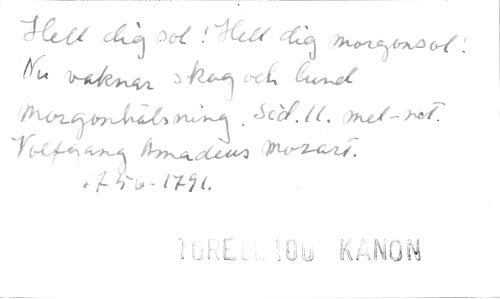 Hell dig sol! Hell dig morgonsol!
Nu vaknar skog och lund
Morgonhälsning. Sid. 11. mel-not.
Wolfgang Amadeus Mozart.
1756-1791.
TORELL 100 KANON